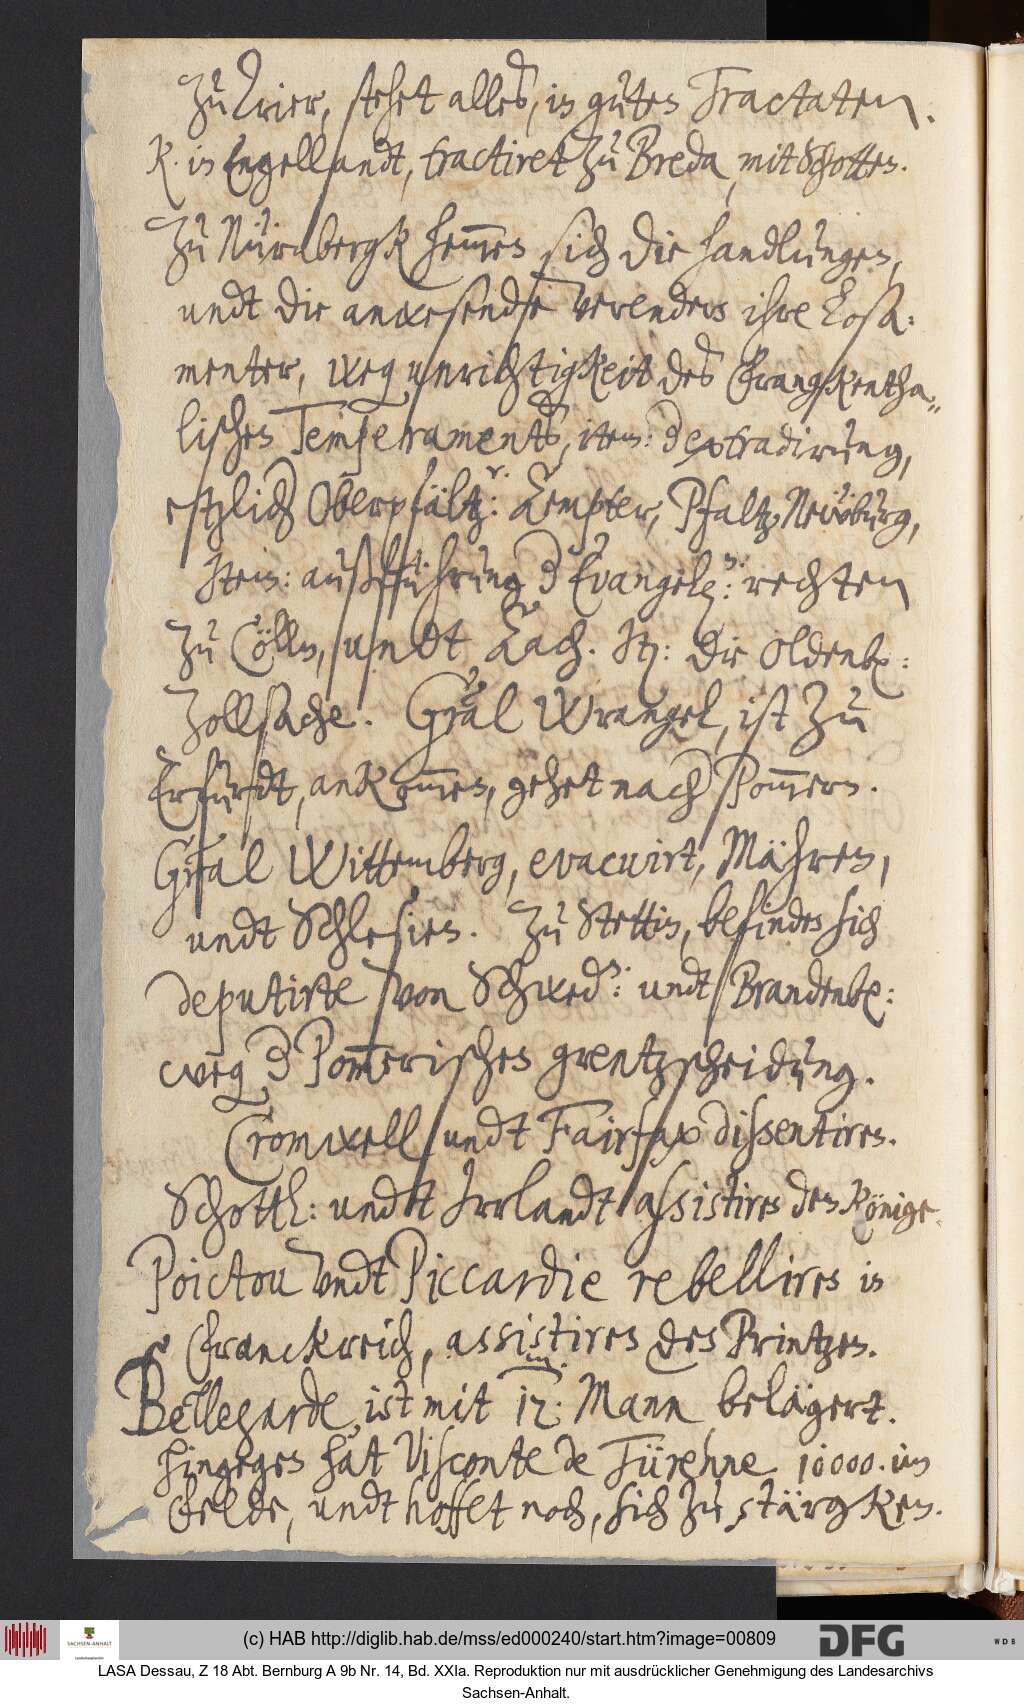 Zu Trier, stehet alles, in guten Tractaten.
K. in Engellandt, tractiret zu Breda, mit Schotten.
Zu Nürnbergk hem̄en sich die handlungen,
undt die anwesende verendern ihre Losa:
menter, weg unrichtigkeit des Frangkentha„
lischen Temperaments, item: d extradirung,
etzlich Oberpfältz:r Aempter, Pfaltz Neüburg,
Item: außführung d Evangel:n rechten
zu Cölln, undt Aach. It: die Oldenb:
Zollsache. Gral Wrangel, ist zu
Erfurdt, ankom̄en, gehet nach Pom̄ern.
Gral Wittemberg, evacuirt, Mähren,
undt Schlesien. Zu Stettin, befinden sich
deputirte von Schwed:n undt Brandenb:
weg d Pom̄erischen grentzscheidung.
Cromwell undt Fairfax dissentiren.
Schottl: undt Irrlandt assistiren dem Könige.
Poictou undt Piccardie rebelliren in
Franckreich, assistiren den Printzen.
Bellegarde ist mit 12m. Mann belägert.
Hingegen hat Visconte de Türenne 10000. im
Felde, undt hoffet noch, sich zu stärgken.
(c) HAB http://diglib.hab.de/mss/ed000240/start.htm?image=00809
SACHSEN-ANHALT
DFG
WDB
LASA Dessau, Z 18 Abt. Bernburg A 9b Nr. 14, Bd. XXIa. Reproduktion nur mit ausdrücklicher Genehmigung des Landesarchivs
Sachsen-Anhalt.